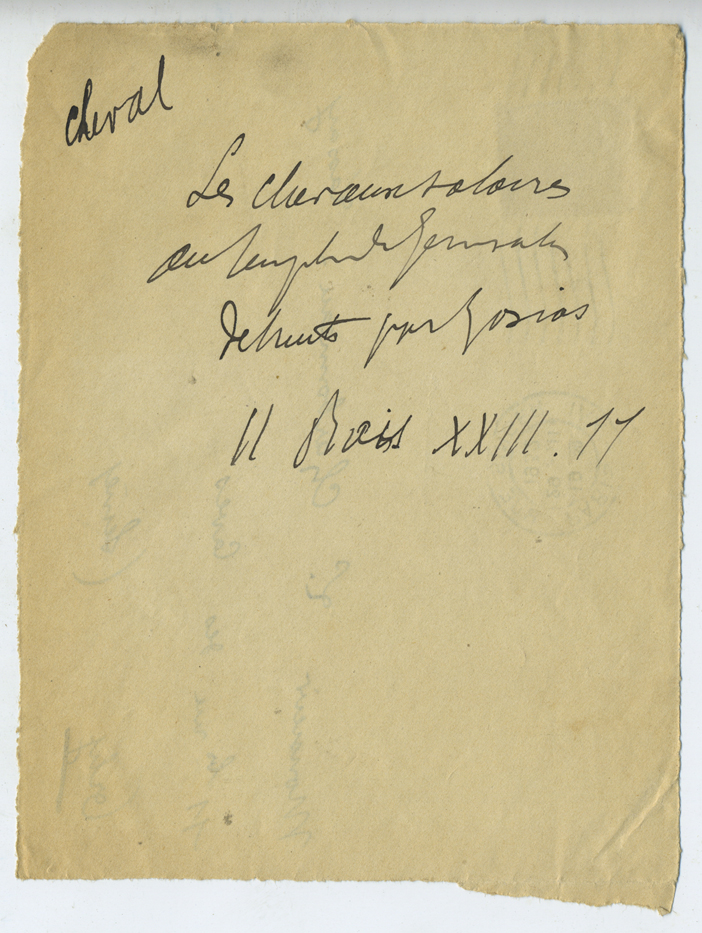 cheval
Les chevaux solaires
au temple de Jerusalem
detruits par Josias
II Rois XXIII. 11